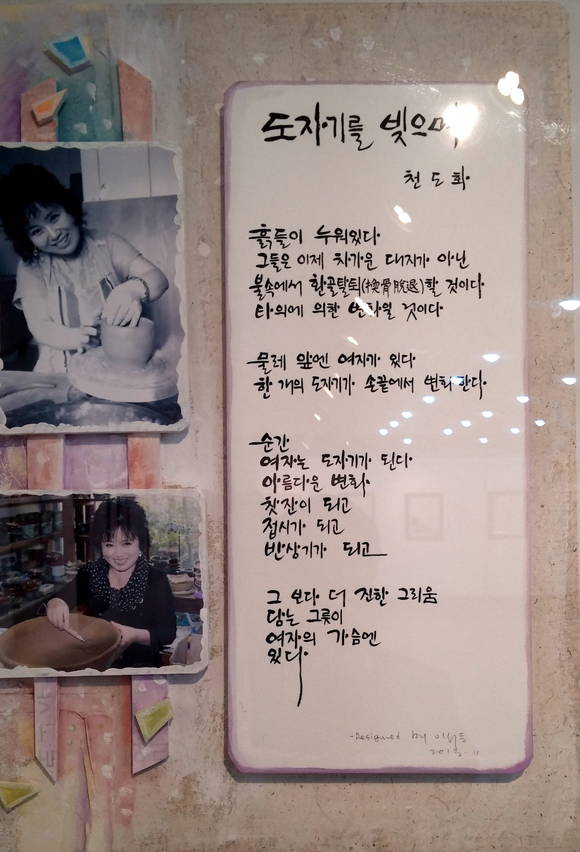 도자기를 빚으며
천 도 화
흙들이 누워있다.
그들은 이제 차가운 대지가 아닌
불속에서 환골탈퇴(換骨脫退)할 것이다
타의에 의한 변화일 것이다.
물레 앞엔 여자가 있다.
한 개의 도자기가 손끝에서 변화한다.
순간
여자는 도자기가 된다.
아름다운 변화.
찻잔이 되고
접시가 되고
반상기가 되고
그 보다 더 진한 그리움
담는 그릇이
여자의 가슴엔
있다.
-Designed by